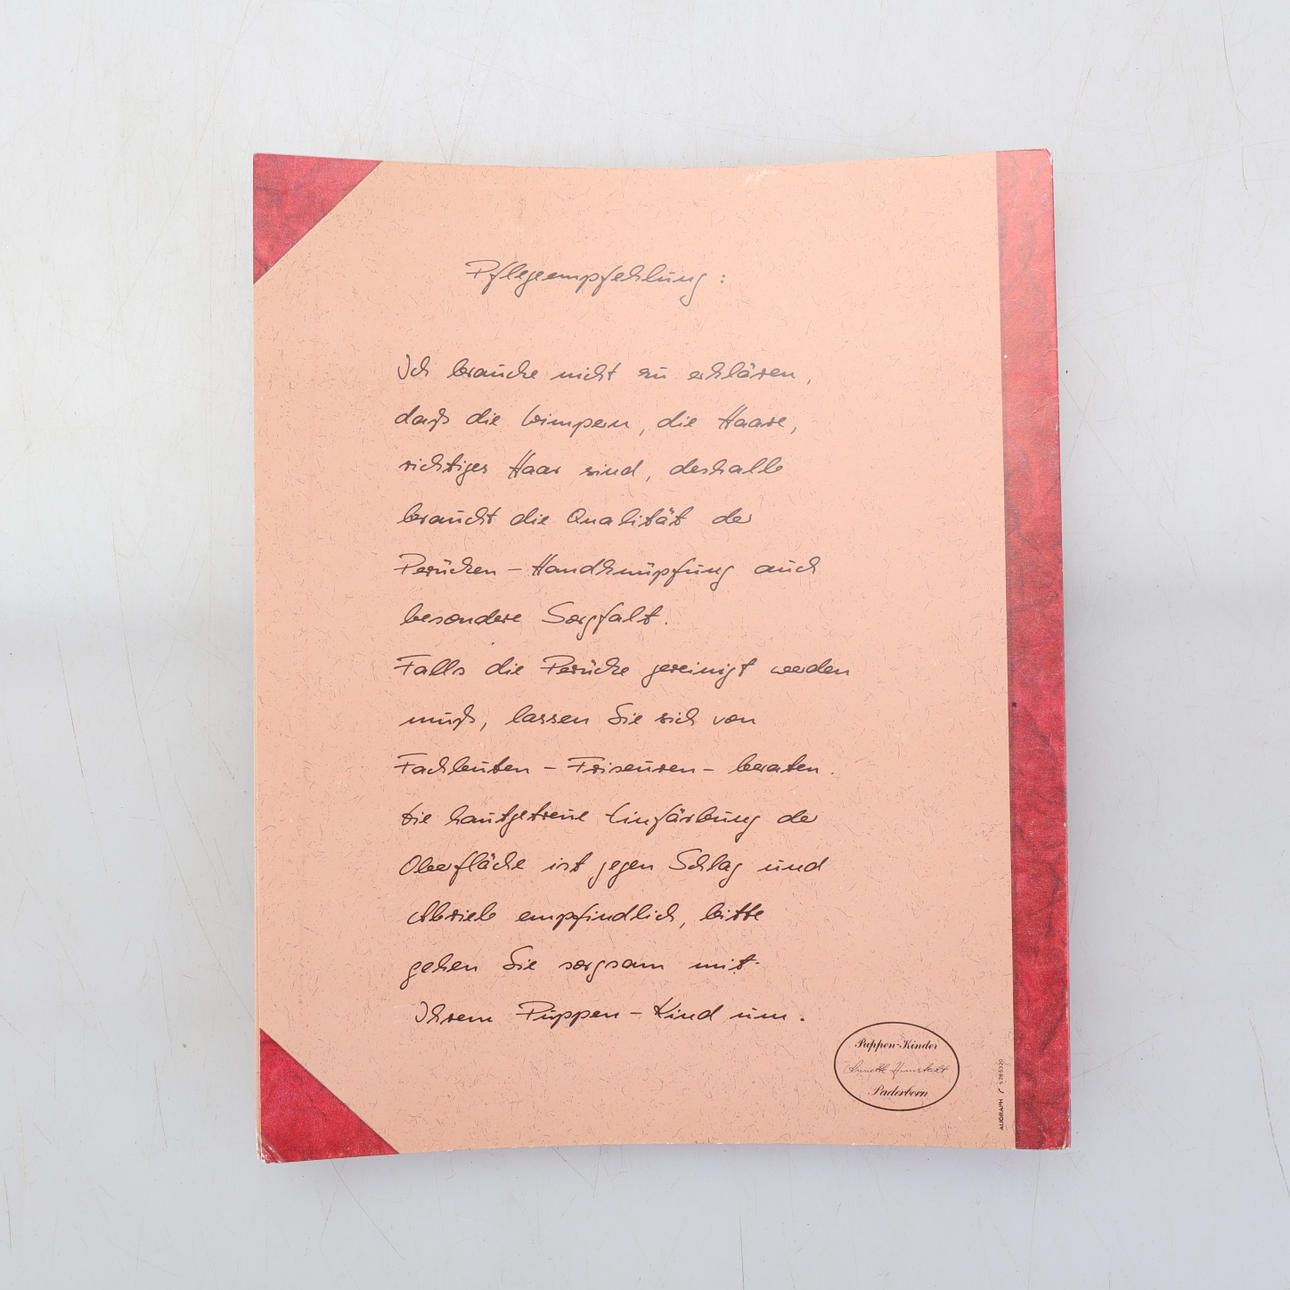 Pflegeempfehlung:
Ich brauche nicht zu erklären,
daß die Wimpern, die Haare,
richtiges Haar sind, deshalb
braucht die Qualität der
Perücken - Handknüpfung auch
besondere Sorgfalt.
Falls die Perücke gereinigt werden
muß, lassen Sie sich von
Fachleuten - Friseuren - beraten.
Die hautgetreue Einfärbung der
Oberfläche ist gegen Schlag und
Abrieb empfindlich, bitte
gehen Sie sorgsam mit
Ihrem Puppen-Kind um.
Puppen-Kinder
Annette Himstedt
Paderborn